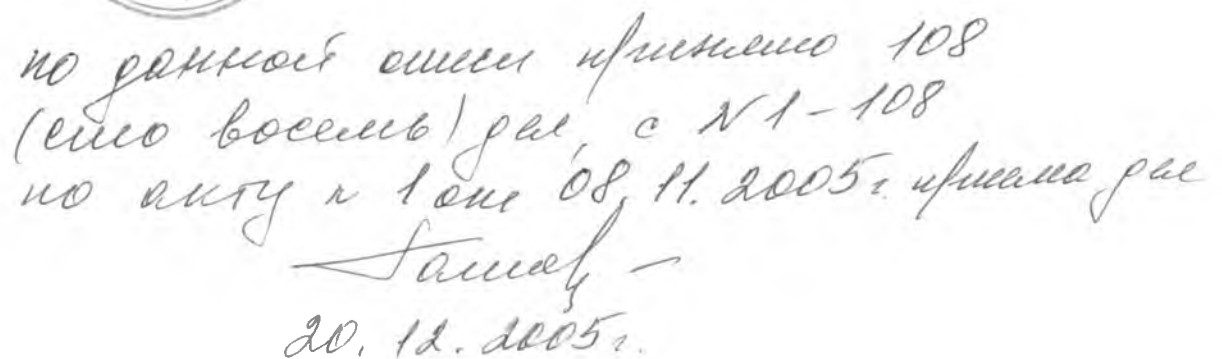 по данной описи принято 108
(сто восемь) дел, с №1-108
по акту № 1 от 08.11.2005г. приема дел
20.12.2005г.